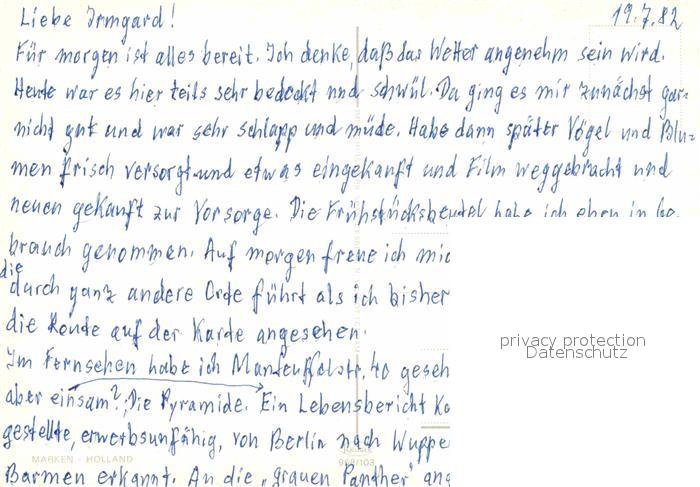 Liebe Irmgard! 19.7.82
Für morgen ist alles bereit. Ich denke, daß das Wetter angenehm sein wird.
Heute war es hier teils sehr bedeckt und schwül. Da ging es mir zunächst gar-
nicht gut und war sehr schlapp und müde. Habe dann später Vögel und Blu-
men frisch versorgt und etwas eingekauft und Film weggebracht und
neuen gekauft zur Vorsorge. Die Frühstücksbeutel habe ich eben in
brauch genommen. Auf morgen freue ich mic
die
durch ganz andere Orte führt als ich bisher
die Route auf der Karte angesehen.
privacy protection
Datenschutz
Im Fernsehen habe ich 40 geseh
aber einsam? Die Pyramide. Ein Lebensbericht
gestellte, erwerbsunfähig, von Berlin nach Wuppe
MARKEN - HOLLAND
968/103
Barmen erkannt. An die „grauen Panther" ang